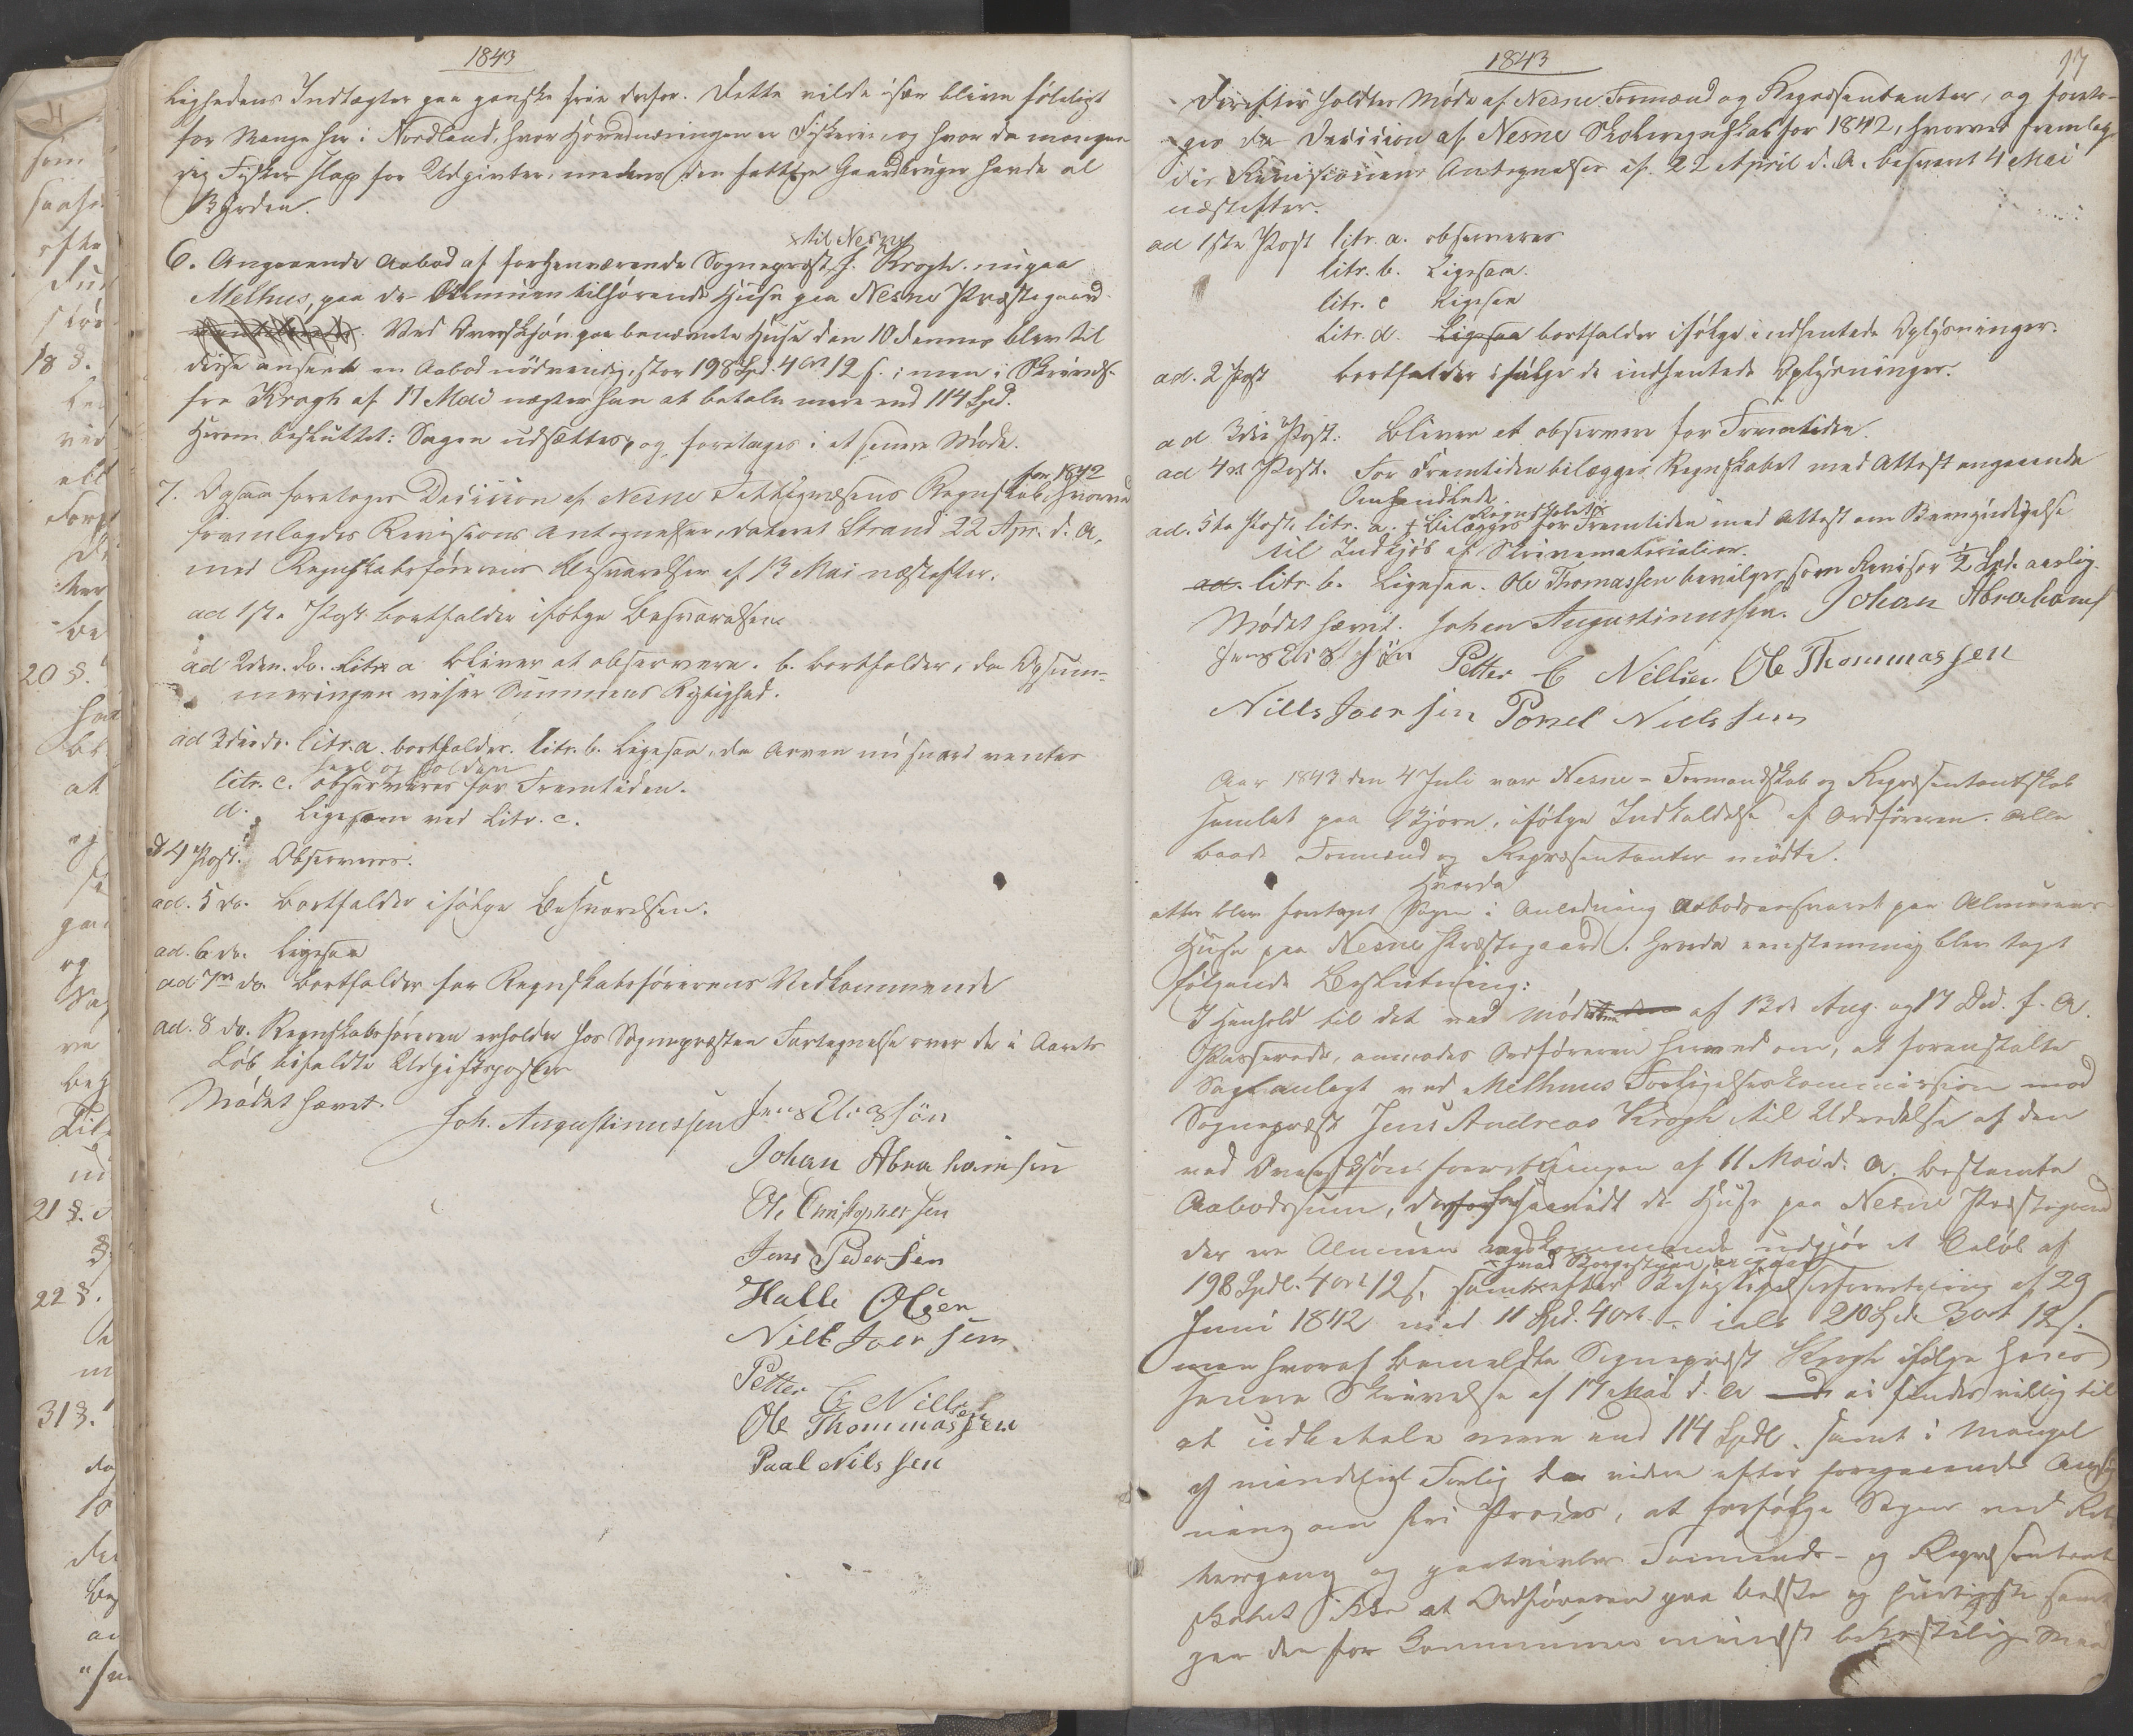 1843
lighedens Indtægter gaa ganske frie derfor. Dette vilde især blive föleligt
for Mange her i Nordland, hvor Hovednæringen er Fiskerie, og hvor da mangen
rig Fisker slap for Udgivter, medens den fattige Gaardbruger havde al
Byrden.
til Nesne
6. Angaaende Aabod af forhenværende Sognepræst H. Krogh, nu paa
Melhus, paa de Almuen tilhørende Huse paa Nesne Præstegaard.
Ved Overskjön paa benævnte Huse den 10 dennes blev til
disse anseet en Aabod nödvendig, stor 198 Spd. 4 ort 12 s.; men i Skrivelse
fra Krogh af 17 Mai nægter han at betale mere end 114 Spd.
Herom besluttet: Sagen udsættes, og foretages i et senere Møde.
for 1842
7. Ogsaa foretoges Decision af Nesne Fattigvæsens Regnskab, hvorved
fremlagdes Revisions Antegnelser, dateret Strand 22 Apr. d. A.
med Regnskabsförerens Besvarelser af 13 Mai næstefter.
ad 1ste Post bortfalder ifölge Besvarelsen.
ad 2den do. Litr a bliver at observere. b. bortfalder, da Opsum-
meringen viser Summens Rigtighed.
ad 3die do. litr. a. bortfalder. litr. b. Ligesaa, da Arven nu snart ventes
heel og holden
litr. c. observeres for Fremtiden.
d. Ligesom ved Litr. c.
ad 4 Post. Observeres.
ad. 5 do. bortfalder ifölge Besvarelsen.
ad. 6 do. ligesaa
ad 7de do. bortfalder for Regnskabsförerens Vedkommende
ad. 8 do. Regnskabsføreren erholder hos Sognepræsten Fortegnelse over de i Aarets
Löb bifaldte Udgiftsposter
Mødet hævet.
Joh. Augustinussen Jens Eliassön
Johan Abrahamsen
Ole Christophersen
Jens Pedersen
Halle Olsen
Nils Joersen
Petter C Nilsen
Ole Thommassen
Paal Nilssen
1843
17
Derefter holdtes Møde af Nesne Formænd og Repræsentanter, og foreto-
ges da Decision af Nesne Skoleregnskab for 1842, hvorved fremlag-
des Revisionens Antegnelser af 22 April d. A. besvaret 4 Mai
næstefter.
ad 1ste Post litr. a. observeres
litr. b. Ligesaa.
litr. c Ligesaa
Litr. d. Ligesaa bortfalder ifölge indhentede Oplysninger.
ad. 2 Post bortfalder ifölge de indhentede Oplysninger.
ad 3die Post: bliver at observere for Fremtiden.
ad 4de Post. For Fremtiden bilægges Regnskabet med Attest angaaende
Omhandlede.
Regnskabet
ad. 5te Post. litr. a. bilægges for Fremtiden med Attest om Bemyndigelse
til Indkjöb af Skrivematerialier.
ad. litr. b. Ligesaa. Ole Thomassen bevilges som Revisor ½ Spd. aarlig.
Mødet hævet. Johan Augustinussen. Johan Abrahams
Jens Eliassön Petter C Nilsen Ole Thommassen
Nills Joersen Povel Nielssen
Aar 1843 den 4 Juli var Nesne-Formandskab og Repræsentantskab
samlet paa Bjørn, ifölge Indkaldelse af Ordføreren. Alle
baade Formænd og Repræsentanter mødte.
Hvorda
atter blev foretaget Sagen i Anledning Aabodsansvaret paa Almuens
Huse paa Nesne Præstegaard. hvorda eenstemmig blev tagt
følgende Beslutning:
I Henhold til det ved Møderne af 13de Aug. og 17 Dec. f. A.
Passerede, anmodes Ordføreren herved om, at foranstalte
Sag anlagt ved Melhuus Forligelseskommission mod
Sognepræst Jens Andreas Krogh til Udredelse af den
ved Overskjønsforretningen af 11 Mai d. A. bestemte
Aabodssum, der for saavidt de Huse paa Nesne Præstegaard
der ere Almuen vedkommende udgjör et Beløb af
hvad Borgestuen angaar
198 Spdl. 4 ort 12 s. samt efter Besigtigelsesforretning af 29
Juni 1842 med 11 Spd. 4 ort - ialt 210 Spd. 3 ort 12 s.
men hvoraf bemeldte Sognepræst Krogh ifølge hans
senere Skrivelse af 17 Mai d. A ei findes villig til
at udbetale mere end 114 Spdl. samt i Mangel
af mindeligt Forlig da videre efter foregaaende Ansög-
ning om fri Proces, at forfølge Sagen ved Ret-
tergang og paatvivler Formands- og Repræsentant-
skabet ikke at Ordføreren paa bedste og hurtigste samt
paa den for Kommunen mindst bekostelig Maa